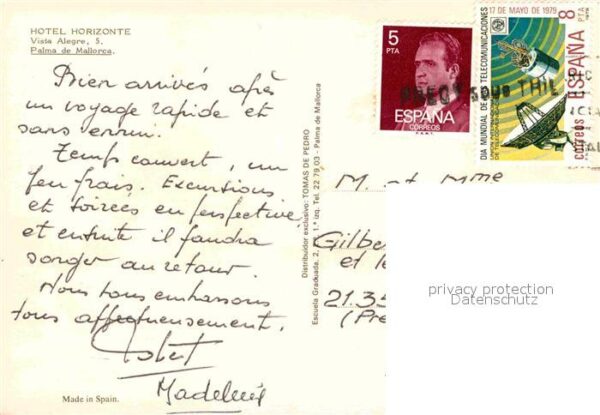 HOTEL HORIZONTE
Vista Alegre, 5,
Palma de Mallorca.
Bien arrivés après
un voyage rapide et
sans ennui.
Temps couvert, un
peu frais. Excursions
et soirées en perspective
et ensuite il faudra
songer au retour.
Nous vous embrassons
tous affectueusement.
Madeleine
Made in Spain.
Distribuidor exclusivo: TOMAS DE PEDRO
Escuela Graduada, 2, 1.º izq. Tel. 22 79 03 - Palma de Mallorca
5
PTA
ESPAÑA
CORREOS
17 DE MAYO DE 1979
DIA MUNDIAL DE LAS TELECOMUNICACIONES
correos ESPAÑA 8
PTA
M. et Mme
Gilbe
et le
21.35
(Pre
privacy protection
Datenschutz